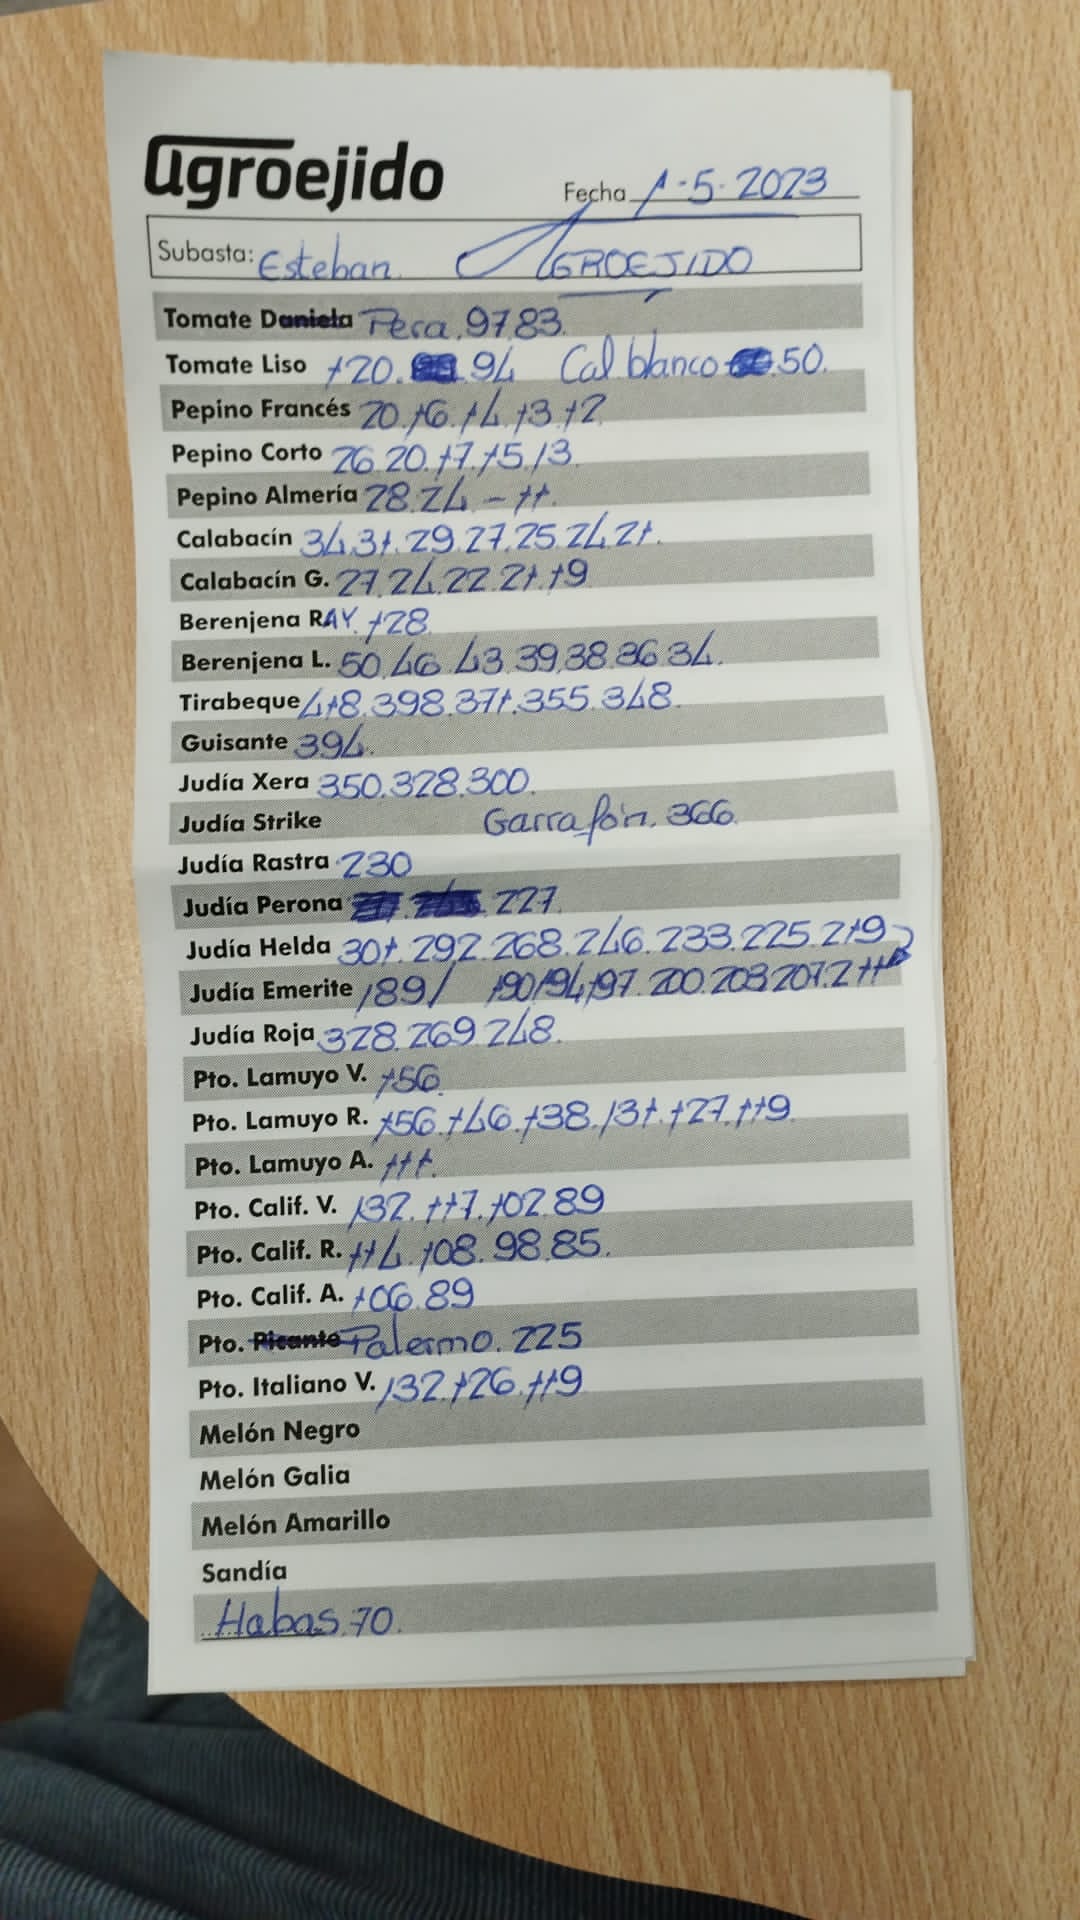 agroejido
Fecha 1-5-2023
Subasta: Esteban. AGROEJIDO
Tomate Daniela Pera. 97.83.
Tomate Liso 120. 94 Cal blanco 50.
Pepino Francés 20.16.14.13.12
Pepino Corto 26.20.17.15.13
Pepino Almería 28.24 - 11.
Calabacín 34.31.29.27.25.24.21.
Calabacín G. 27.24.22.21.19
Berenjena RAY. 128
Berenjena L. 50.46.43.39.38.36.34.
Tirabeque 418.398.371.355.348.
Guisante 394.
Judía Xera 350.328.300.
Judía Strike Garrafón. 366.
Judía Rastra 230
Judía Perona 227.
Judía Helda 301.292.268.246.233.225.219
Judía Emerite 189/ 190/194/197.200.203.207.211
Judía Roja 328.269.248.
Pto. Lamuyo V. 156.
Pto. Lamuyo R. 156.146.138.131.127.119.
Pto. Lamuyo A. 111.
Pto. Calif. V. 132.117.102.89
Pto. Calif. R. 114.108.98.85.
Pto. Calif. A. 106.89
Pto. Picante Palermo. 225
Pto. Italiano V. 132.126.119
Melón Negro
Melón Galia
Melón Amarillo
Sandía
Habas. 70.